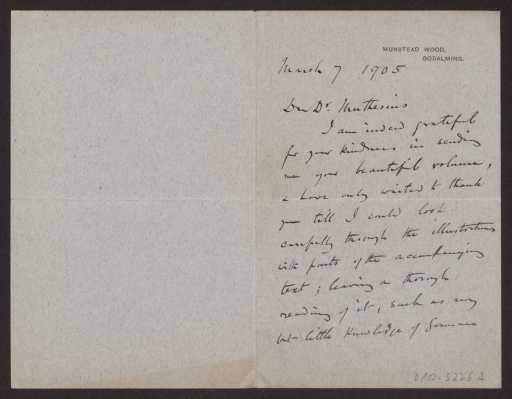 MUNSTEAD WOOD,
GODALMING.
March 7 1905
Dear Dr. Muthesius
I am indeed grateful
for your kindness in sending
me your beautiful volume,
& have only waited to thank
you till I could look
carefully through the illustrations
with parts of the accompanying
text; leaving a thorough
reading of it, such as my
but little knowledge of German